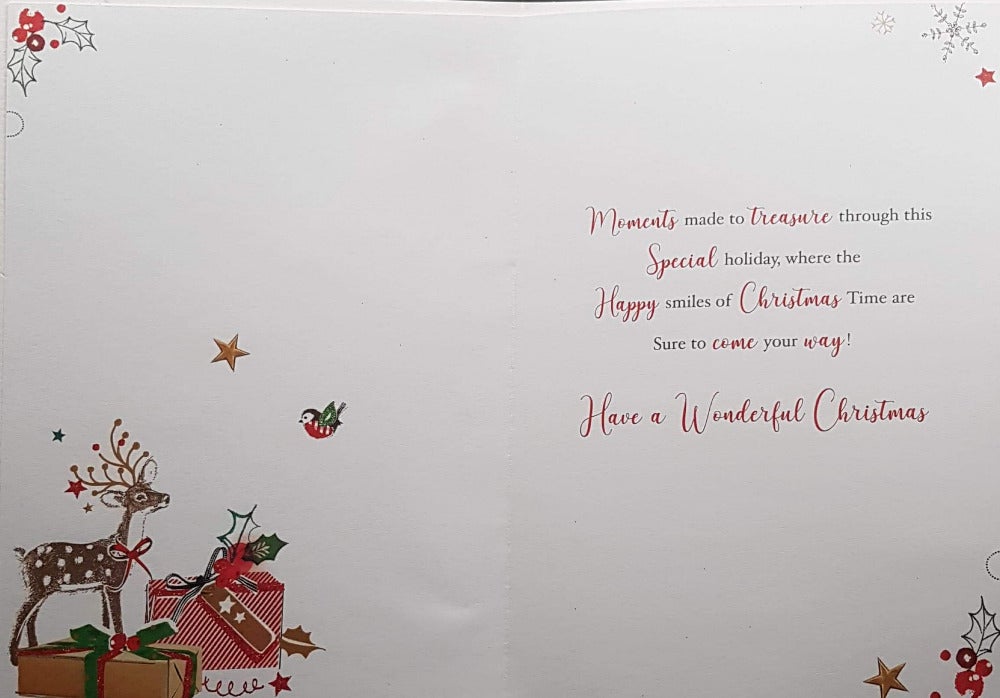 Moments made to treasure through this
Special holiday, where the
Happy smiles of Christmas Time are
Sure to come your way!
Have a Wonderful Christmas